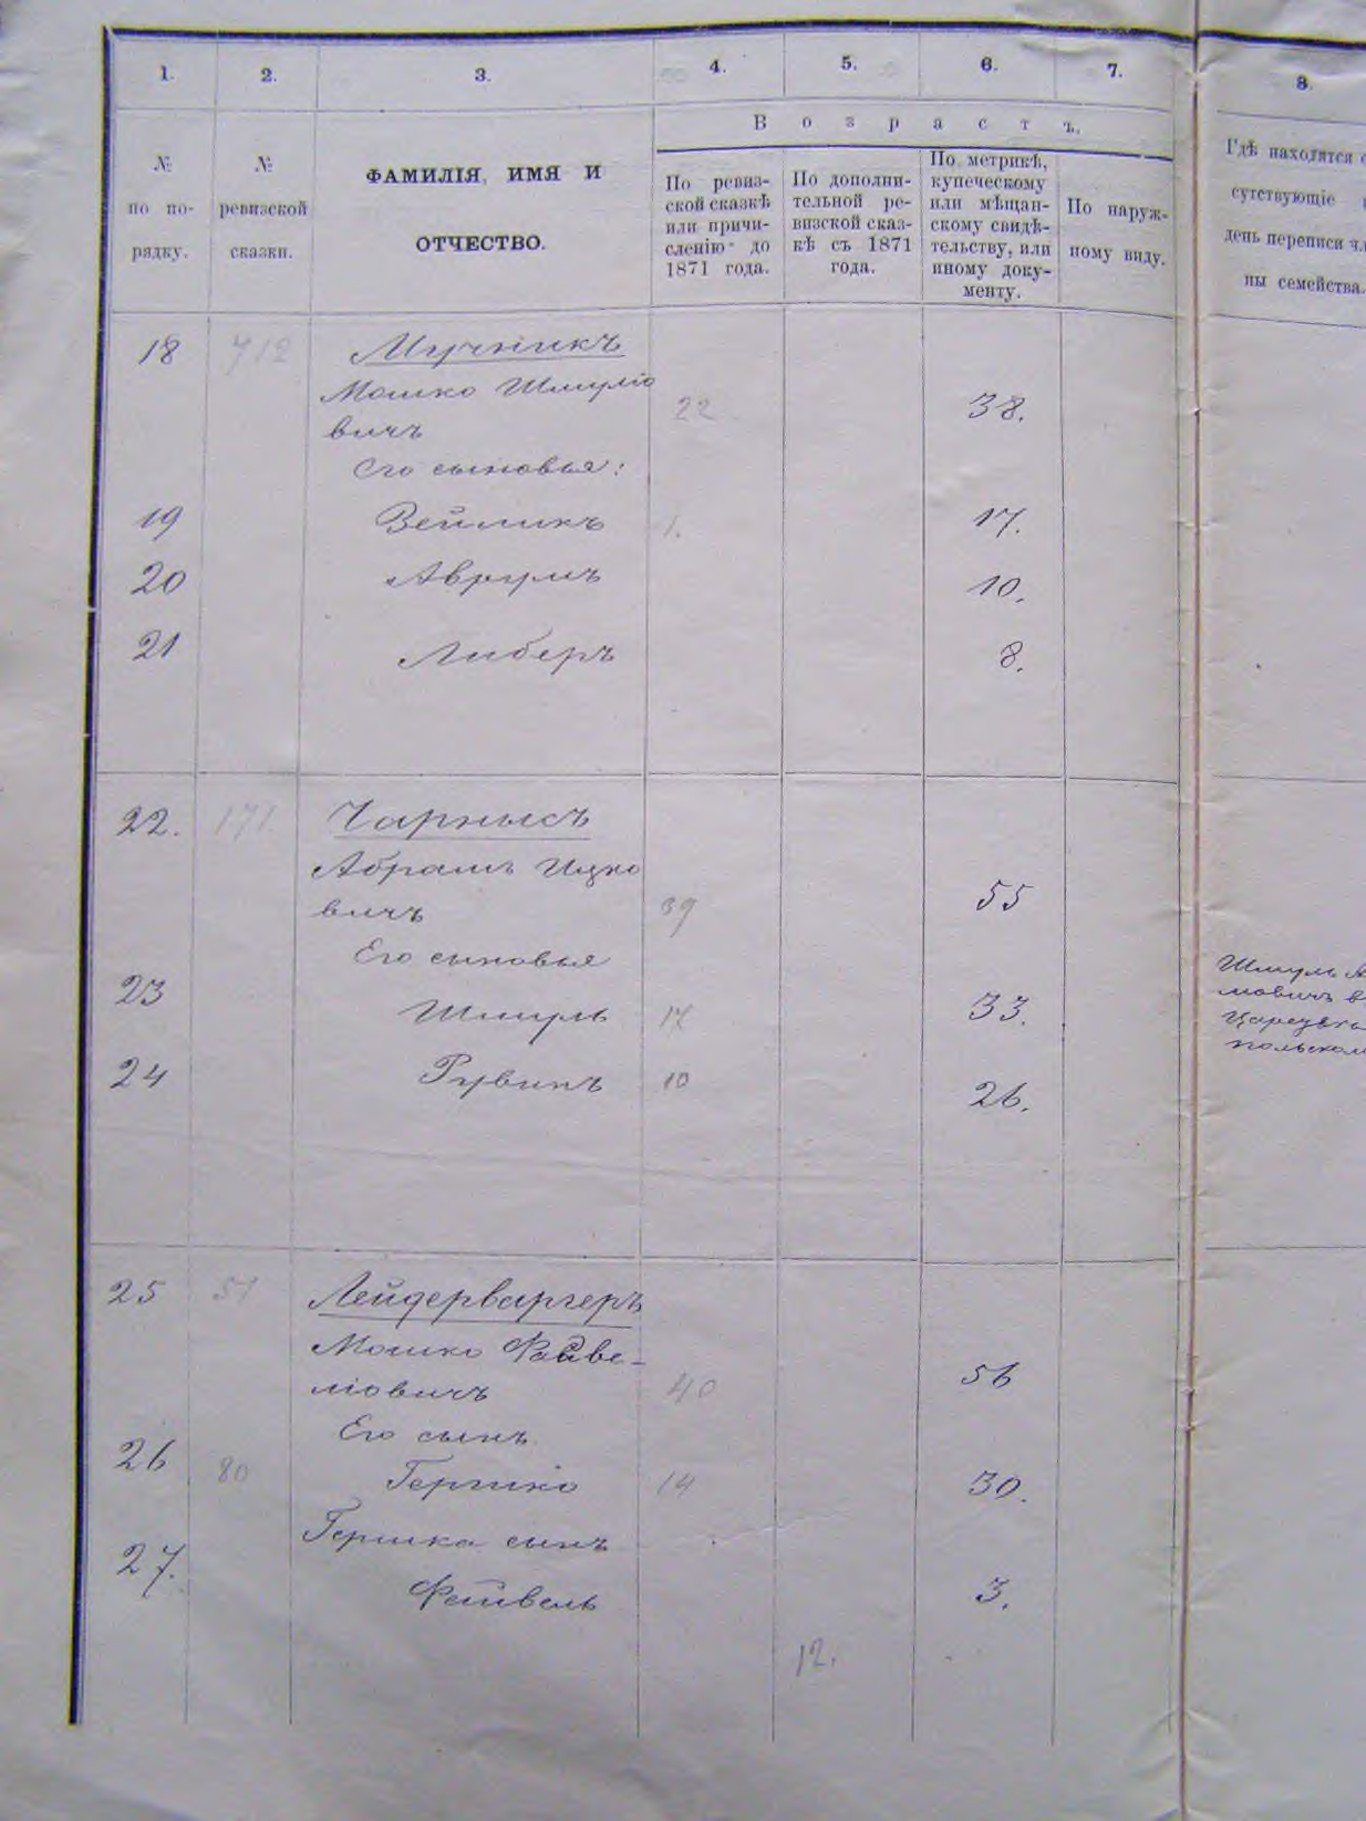 1.
2.
3.
4.
5.
6.
7.
8.
Возрастъ.
№
по по-
рядку.
№
ревизской
сказки.
ФАМИЛІЯ, ИМЯ И
ОТЧЕСТВО.
По ревиз-
ской сказкѣ
или причи-
сленію до
1871 года.
По дополни-
тельной ре-
визской сказ-
кѣ съ 1871
года.
По метрикѣ,
купеческому
или мѣщан-
скому свидѣ-
тельству, или
иному доку-
менту.
По наруж-
ному виду.
Гдѣ находятся
сутствующіе
день переписи чл
ны семейства.
18 712 Мучникъ
Мошко Шмуліо
вичъ 22 38.
Его сыновья:
19 Зейликъ 1. 17.
20 Аврумъ 10.
21 Либеръ 8.
22. 171. Чарнысъ
Абрамъ Ицко
вичъ 39 55
Его сыновья
23 Шмуль 17 33.
24 Рувинъ 10 26.
Шмуль А
мовичъ в
польском
25 51 Лейдерваргеръ
Мошко Файве-
ліовичъ 40 56
Его сынъ
26 80 Гершко 14 30.
Гершка сынъ
27. Фейвель 3.
12.